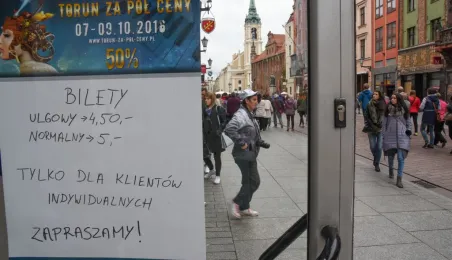 TORUŃ ZA PÓŁ CENY
07-09.10.2016
WWW.TORUN-ZA-POL-CENY.PL
50%
BILETY
ULGOWY → 4,50,-
NORMALNY → 5,-
TYLKO DLA KLIENTÓW
INDYWIDUALNYCH
ZAPRASZAMY!